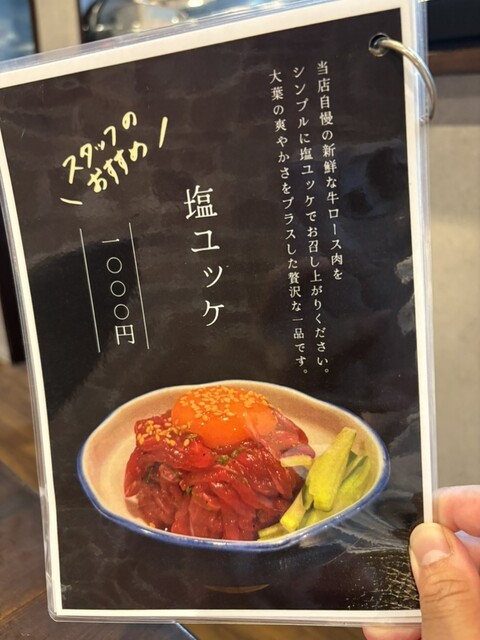 当店自慢の新鮮な牛ロース肉を
シンプルに塩ユッケでお召し上がりください。
大葉の爽やかさをプラスした贅沢な一品です。
塩ユッケ
一〇〇〇円
スタッフの
おすすめ